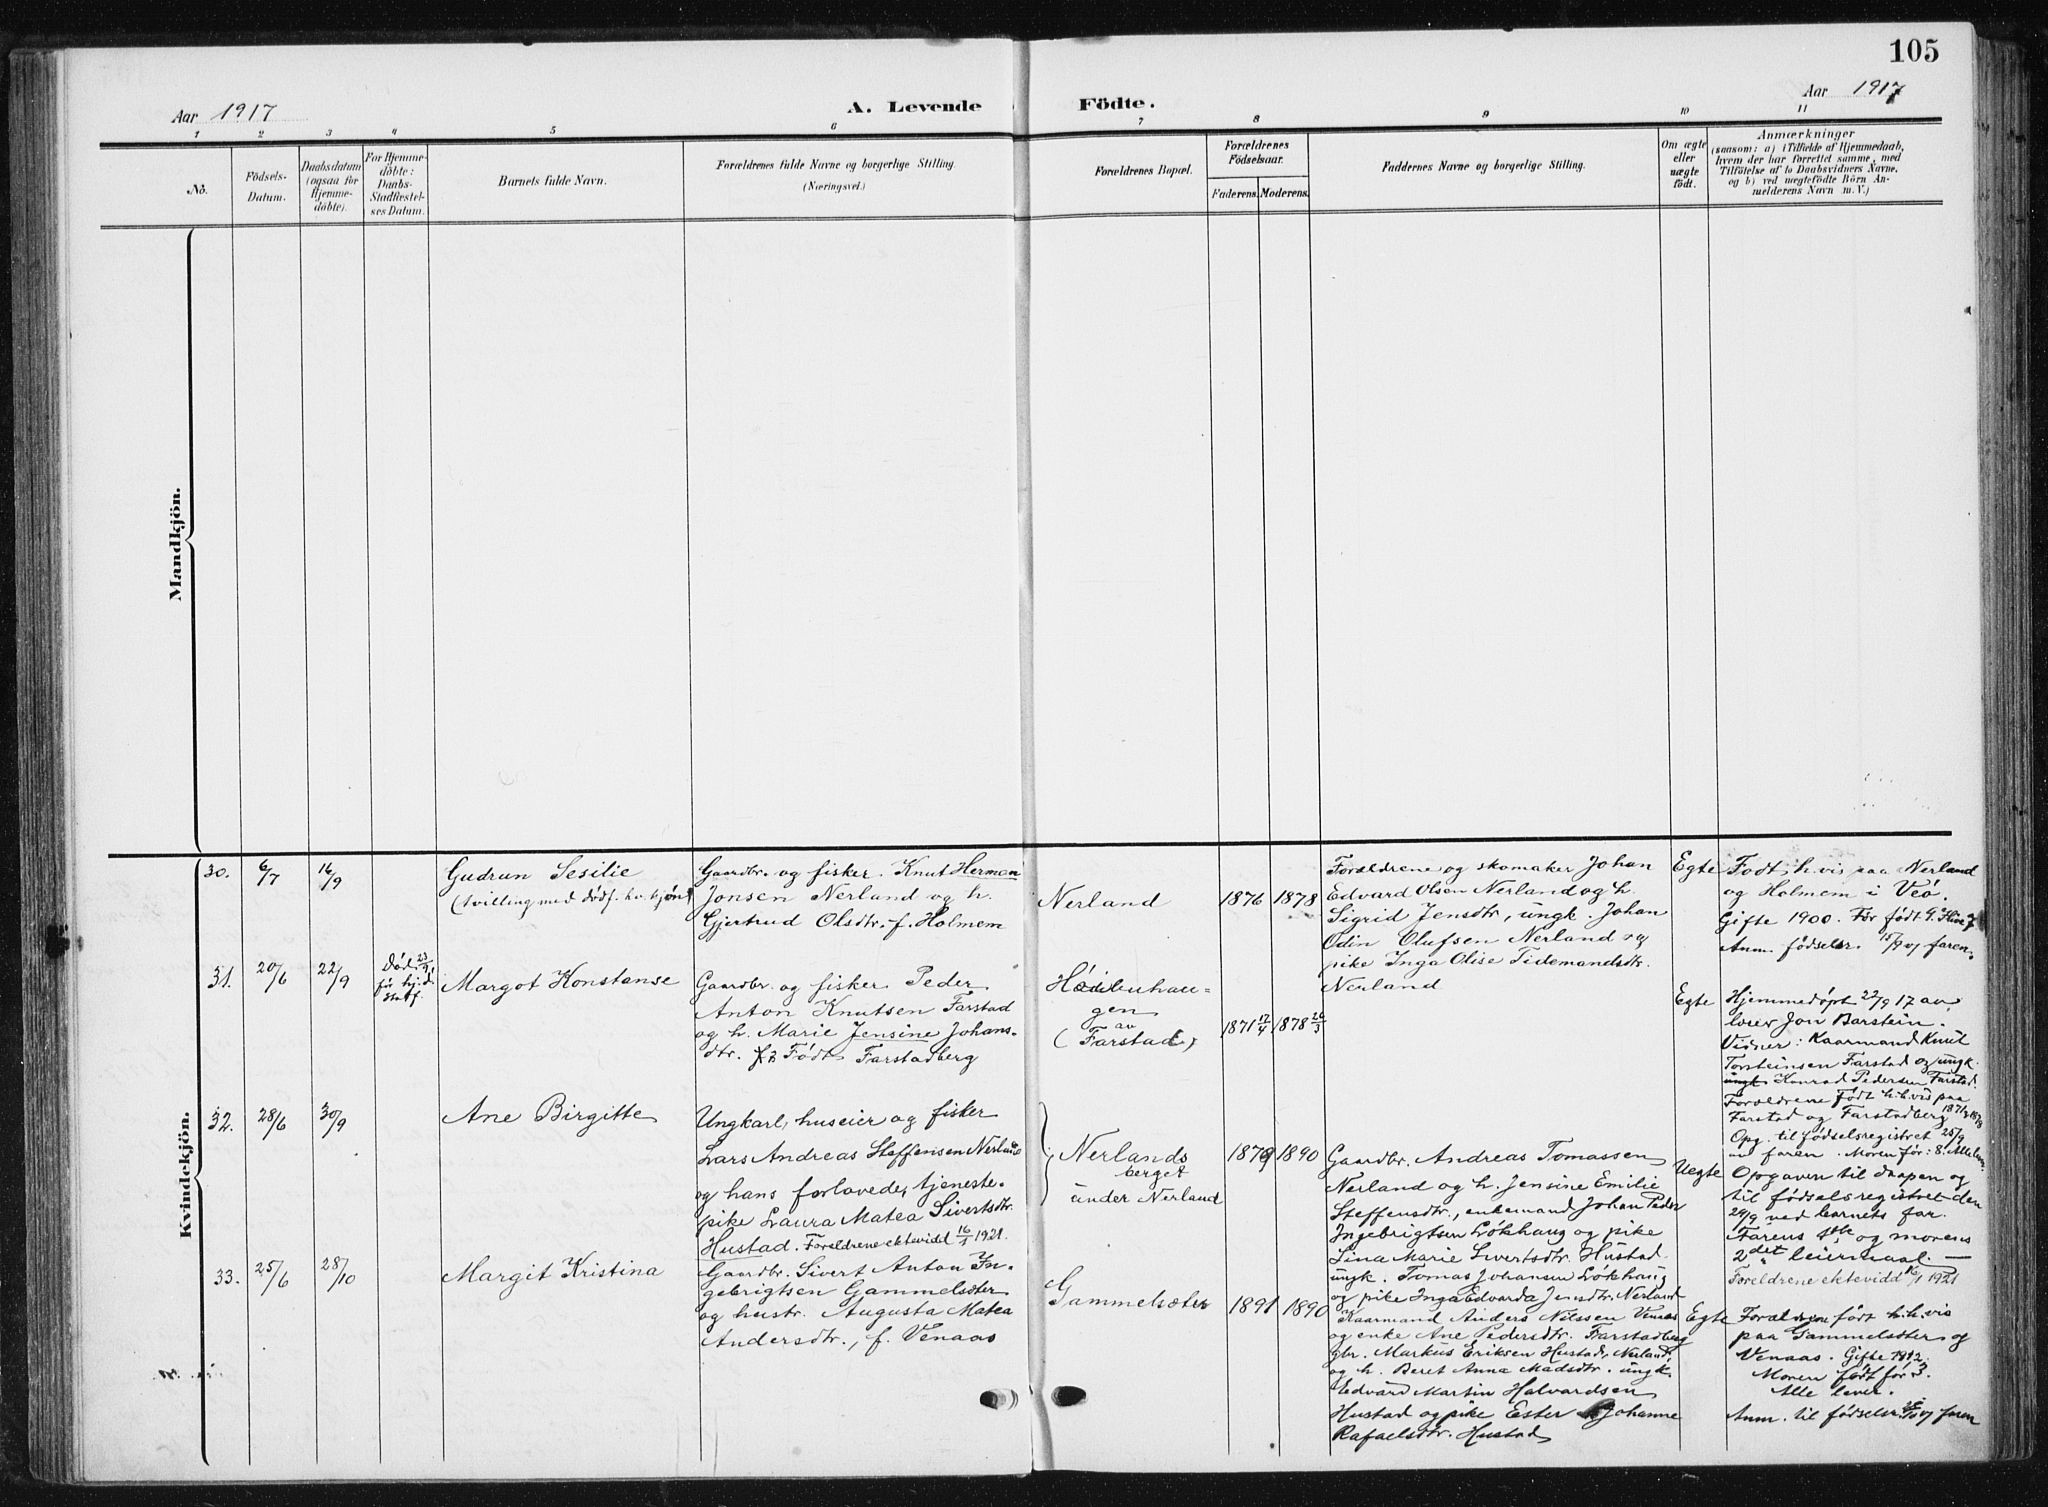 105
Aar 1917
A. Levende Födte.
Aar 1917
1 2 3 4 5 6 7 8 9 10 11
No.
Fødsels-
Datum.
Daabsdatum
(ogsaa for
Hjemme-
døbte).
For Hjemme-
döbte:
Daabs-
Stadfæstel-
ses Datum.
Barnets fulde Navn.
Forældrenes fulde Navne og borgerlige Stilling
(Næringsvei.)
Forældrenes Bopæl.
Forældrenes
Födselsaar.
Faderens. Moderens.
Faddernes Navne og borgerlige Stilling.
Om ægte
eller
uægte
födt.
Anmærkninger
(saasom: a) i Tilfælde af Hjemmedaab,
hvem der har forrettet samme, med
Tilföielse af to Daabsvidners Navne.
og b) ved uægtefödte Börn An-
melderens Navn m. V.)
Mandkjön.
Kvindekjön.
30. 6/7 16/9
Gudrun Sesilie
(tvilling med dödf. kv. kjön)
Gaardbr. og fisker Knut Herman
Jonsen Nerland og h.
Gjertrud Olsdtr. f. Holmem
Nerland
1876 1878
Foreldrene og skomaker Johan
Edvard Olsen Nerland og h.
Sigrid Jensdtr, ungk. Johan
Odin Olufsen Nerland og
pike Inga Olise Tidemandsdtr.
Nerland
Egte
Födt h.vis paa Nerland
og Holmem i Veö.
Gifte 1900. För födt 9.
Anm. födselsr. 15/9 v/ faren.
31. 20/6 22/9
Död 23/9
för hj.d.
statf.
Margot Konstanse
Gaardbr. og fisker Peder
Anton Knutsen Farstad
og h. Marie Jensine Johans-
dtr. Född Farstadberg
gen
av
(Farstad)
1871 17/4 1878 26/3
Egte
Hjemmedöpt 22/9 17 av
lærer Jon Barstein.
Vidner: Kaarmand Knut
Torsteinsen Farstad og ungk.
ungk. Konrad Pedersen Farstad.
Foreldrene födt h.h.vis paa
Farstad og Farstadberg
Opg. til födselsregistret 25/9
av faren. Moren för: 8. Alle lev.
32. 28/6 30/9
Ane Birgitte
Ungkarl, huseier og fisker
Lars Andreas Steffensen Nerland
og hans forlovede, tjeneste-
pike Laura Matea Sivertsdtr.
Hustad. Foreldrene ektevidd 16/1 1921.
Nerlands
berget
under Nerland
1879 1890
Gaardbr. Andreas Tomassen
Nerland og h. Jensine Emilie
Steffensdtr., enkemand Johan Peder
Ingebrigtsen Lökhaug og pike
Lina Marie Sivertsdtr. Hustad.
ungk. Tomas Johansen Lökhaug
og pike Inga Edvarda Jensdtr. Nerland
Uegte
Opgaven til daapen og
til födselsregistret den
29/9 ved barnets far.
Farens 1ste og morens
2det leiermaal. —
Foreldrene ektevidd 16/1 1921
33. 25/6 28/10
Margit Kristina
Gaardbr. Sivert Anton In-
gebrigtsen Gammelsæter
og hustr. Augusta Matea
Andersdtr., f. Venaas
Gammelsæter
1891 1890
Kaarmand Anders Nilssen Venaas
og enke Ane Pedersdtr. Farstadberg
gbr. Markus Eriksen Hustad, Nerland
og h. Beret Anna Madsdtr. ungk.
Edvard Martin Halvardsen
Hustad og pike Ester Johanne
Rafaelsdtr. Hustad
Egte
Foreldrene födt h.h.vis
paa Gammelsæter og
Venaas. Gifte 1912.
Moren født før 3.
Alle lever.
Anm. til födselsr. v/ faren